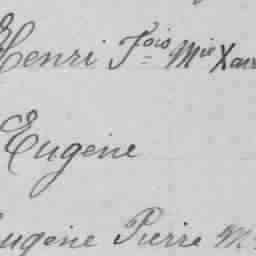 Henri Fois Mie Xav
Eugène
Eugène Pierre M